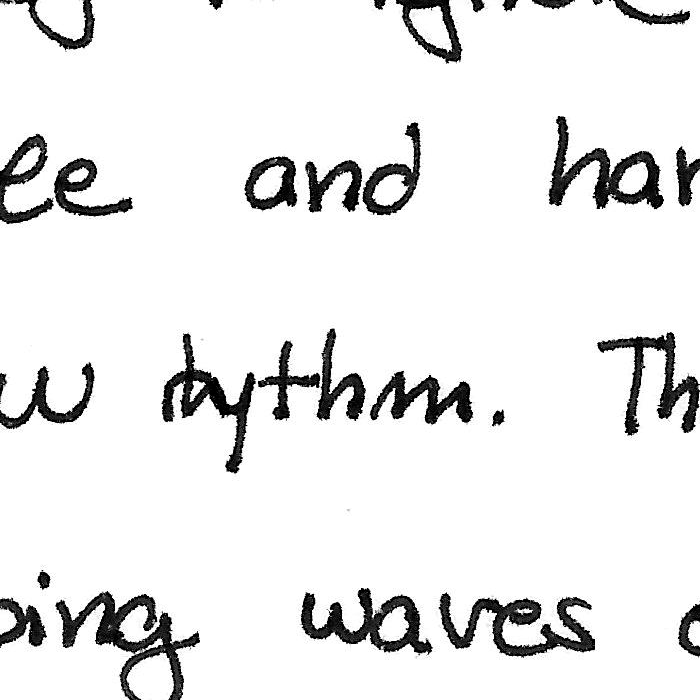 ee and har
w rhythm. Th
ing waves